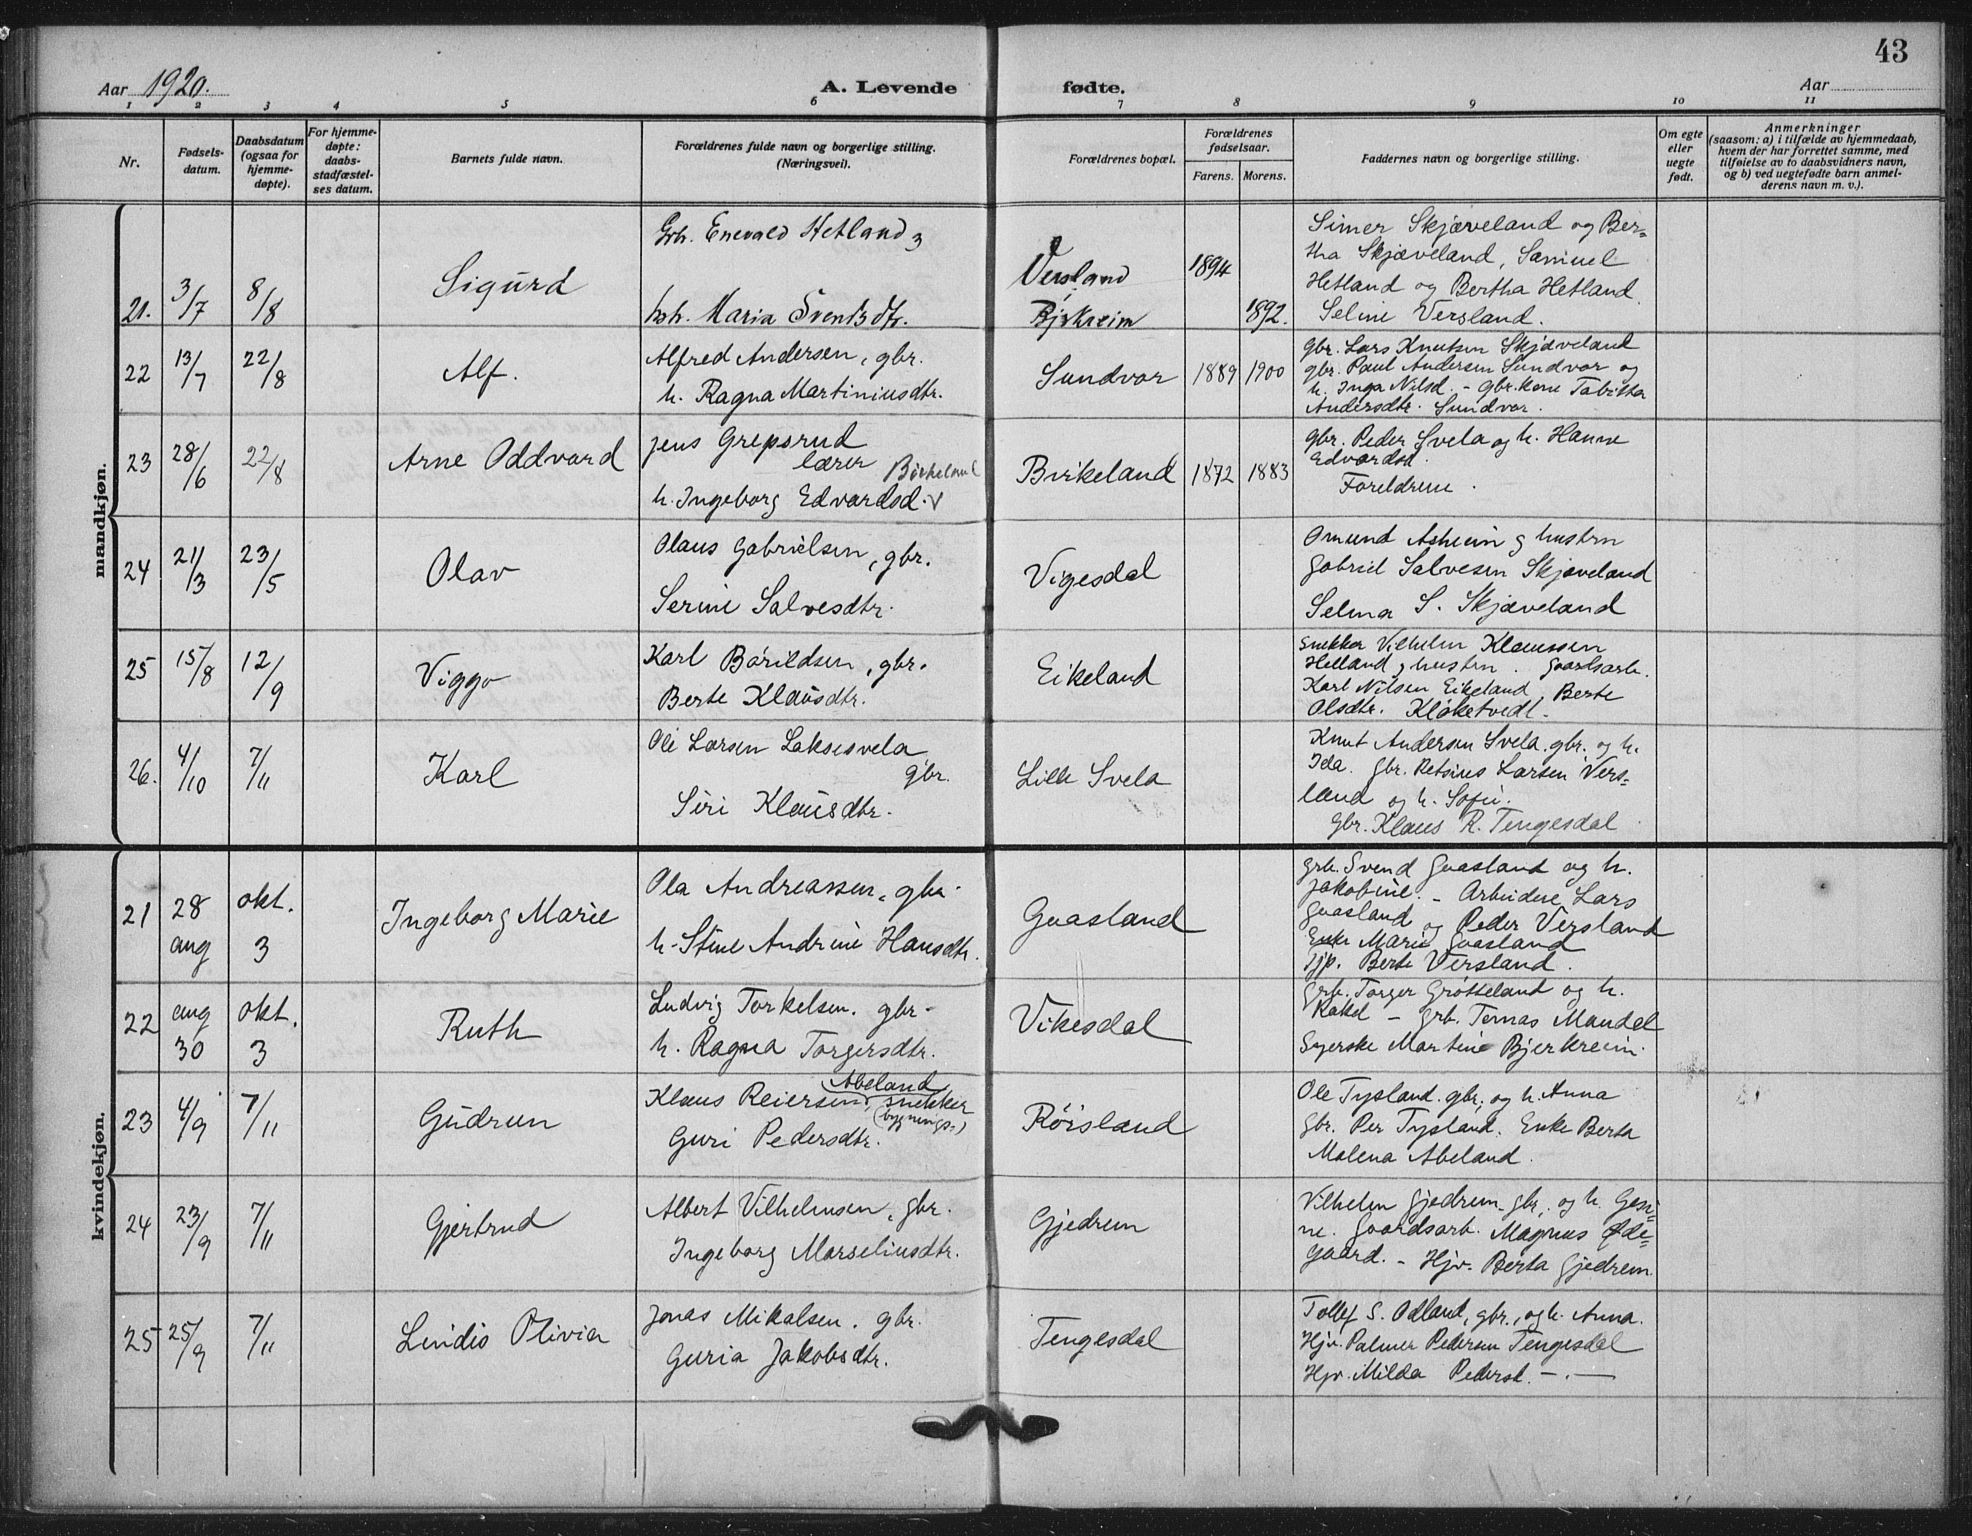 43
Aar 1920.
A. Levende fødte.
Aar
1 2 3 4 5 6 7 8 9 10 11
Nr.
Fødsels-
datum.
Daabsdatum
(ogsaa for
hjemme-
døpte).
For hjemme-
døpte:
daabs-
stadfæstel-
ses datum.
Barnets fulde navn.
Forældrenes fulde navn og borgerlige stilling.
(Næringsvei).
Forældrenes bopæl.
Forældrenes
fødselsaar.
Farens. Morens.
Faddernes navn og borgerlige stilling.
Om egte
eller
uegte
født.
Anmerkninger
(saasom: a) i tilfælde av hjemmedaab,
hvem der har forrettet samme, med
tilføielse av to daabsvidners navn,
og b) ved uegtefødte barn anmel-
derens navn m. v.).
mandkjøn.
21. 3/7 8/8 Sigurd
Enevald Hetland
Maria
Versland
Bjerkreim
1894
1892.
Simer Skjæveland og Ber-
tha Skjæveland, Samuel
Hetland og Bertha Hetland
Seline Versland.
22 13/7 22/8 Alf.
Alfred Andersen, gbr.
h. Ragna Martiniusdtr.
Sundvor 1889 1900
gbr. Lars Knutsen Skjæveland
gbr. Paul Andersen Sundvor og
h. Inga Nilsd. - gbr.kone Tabitha
Andersdtr. Sundvor.
23 28/6 22/8 Arne Oddvard
Jens Grepsrud
lærer Birkeland
h. Ingeborg Edvardsd.
Birkeland 1872 1883
gbr. Peder Svela og h. Hanne
Edvardsd.
Foreldrene.
24 21/3 23/5 Olav
Olaus Gabrielsen, gbr.
Serine Salvesdtr.
Vigesdal
Omund Asheim og hustru
Gabriel Salvesen Skjæveland
Selma S. Skjæveland
25 15/8 12/9 Viggo
Karl Bårildsen, gbr.
Berte Klausdtr.
Eikeland
Snekker Vilhelm Klaussen
Helland og hustru. Gaardsarb.
Karl Nilsen Eikeland, Berte
Olsdtr. Kløketvedt.
26. 4/10 7/11 Karl
Ole Larsen Laksesvela
gbr.
Siri Klausdtr.
Lille Svela
Knut Andersen Svela. gbr. og h.
Ida. gbr. Larsen Vers-
land og h. Sofie.
Gbr. Klaus R. Tengesdal
kvindekjøn.
21 28 aug okt. 3 Ingeborg Marie
Ola Andreassen, gbr.
h. Stine Andrine Hansdtr.
Gvasland
grb. Svend Gvasland og h.
Jakobine. - Arbeidere Lars
Gvasland og Peder Versland
Enke Marie Gvasland
Tjp. Berte Versland.
22 aug 30 okt. 3 Ruth
Ludvig Torkelsen. gbr -
h. Ragna Torgersdtr.
Vikesdal
grb. Torger Grøtteland og h.
Rakel - grb. Tomas Mandal
Syerske Martine Bjerkreim.
23 4/9 7/11 Gudrun
Abeland
Klaus Reiersen, snekker
(bygnings-)
Guri Pedersdtr.
Røisland
Ole Tysland. gbr. og h. Anna
gbr. Per Tysland. Enke Berta
Malena Abeland.
24 23/9 7/11 Gjertrud
Albert Vilhelmsen, gbr.
Ingeborg Marseliusdtr.
Gjedrem
Vilhelm Gjedrem. gbr. og h. Gesi-
ne. Gaardsarb. Magnus Øde-
gaard. - Hjv. Berta Gjedrem
25 25/9 7/11 Lindis Olivia
Jonas Mikalsen. gbr.
Guria Jakobsdtr.
Tengesdal
Tollef S. Odland, gbr., og h. Anna.
Hjv. Palmer Pedersen Tengesdal
Hjv. Milda Pedersd. - . -